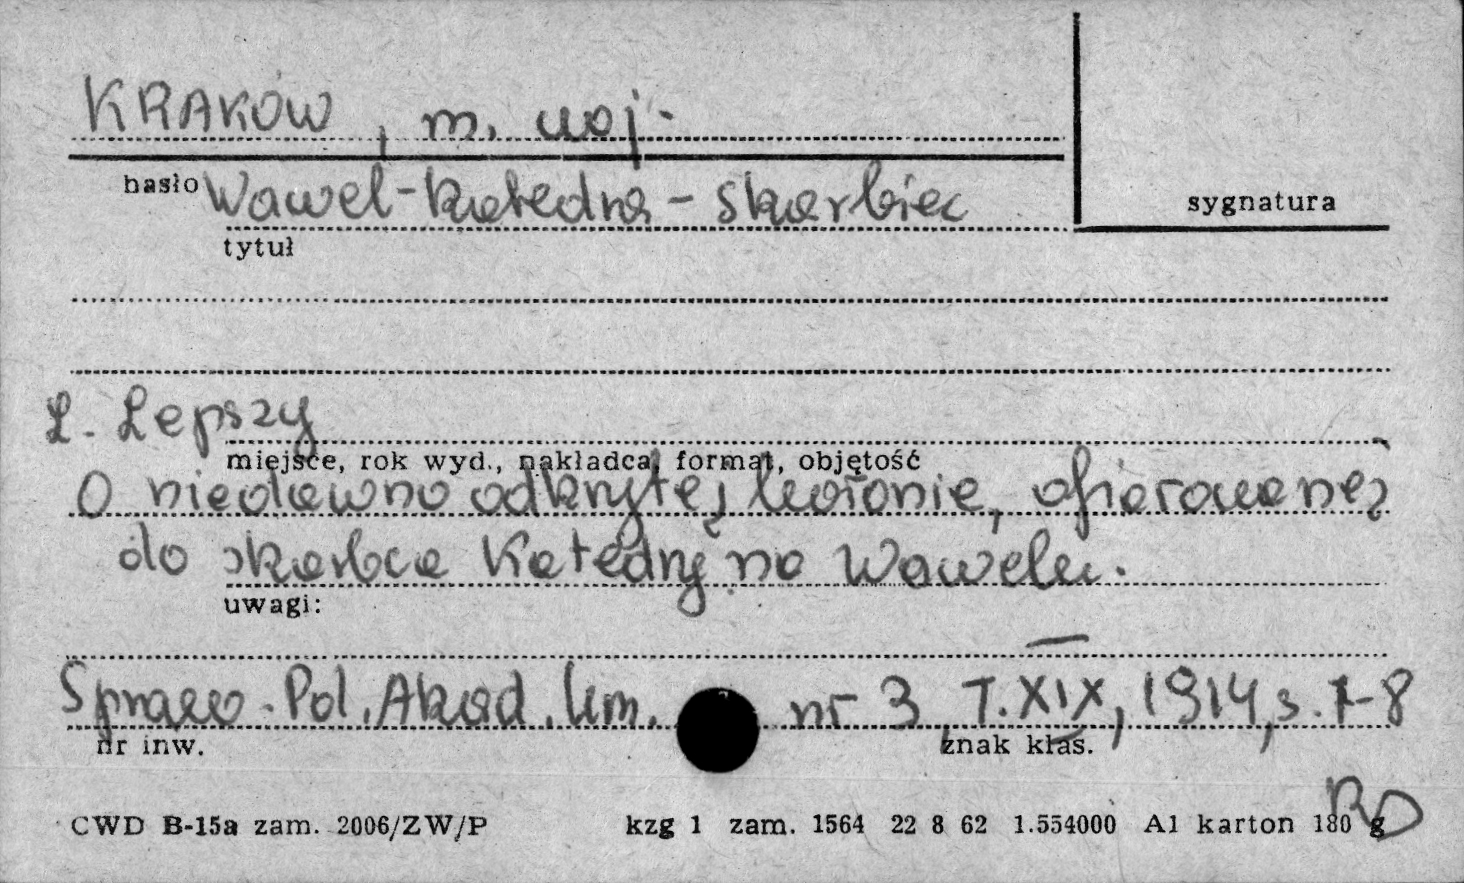 KRAKÓW, m. woj.
hasło Wawel-katedra - skarbiec
sygnatura
tytuł
L. Lepszy
miejsce, rok wyd., nakładca, format, objętość
O niedawno odkrytej koronie, ofiarowanej
do skarbca Katedry na Wawelu.
uwagi:
Spraw. Pol. Akad. Um. nr 3 T. XIX, 1914, s. 7-8
nr inw. znak klas.
CWD B-15a zam. 2006/ZW/P kzg 1 zam. 1564 22 8 62 1.554000 A1 karton 180 g